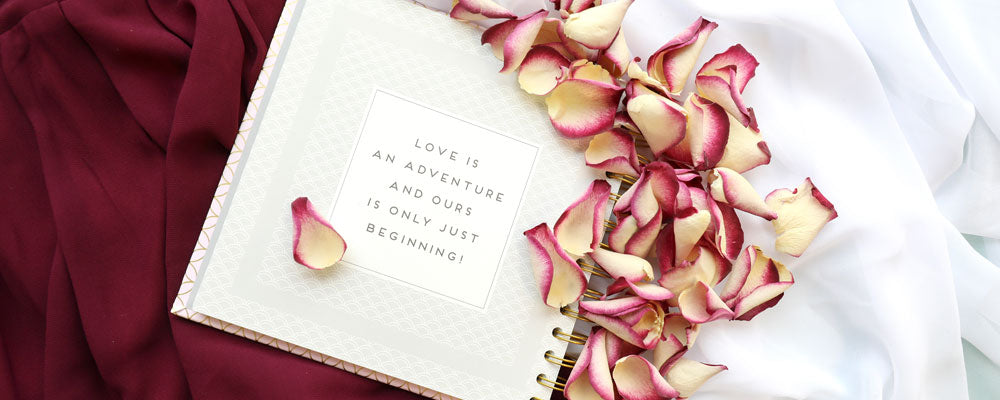 LOVE IS
AN ADVENTURE
AND OURS
IS ONLY JUST
BEGINNING!